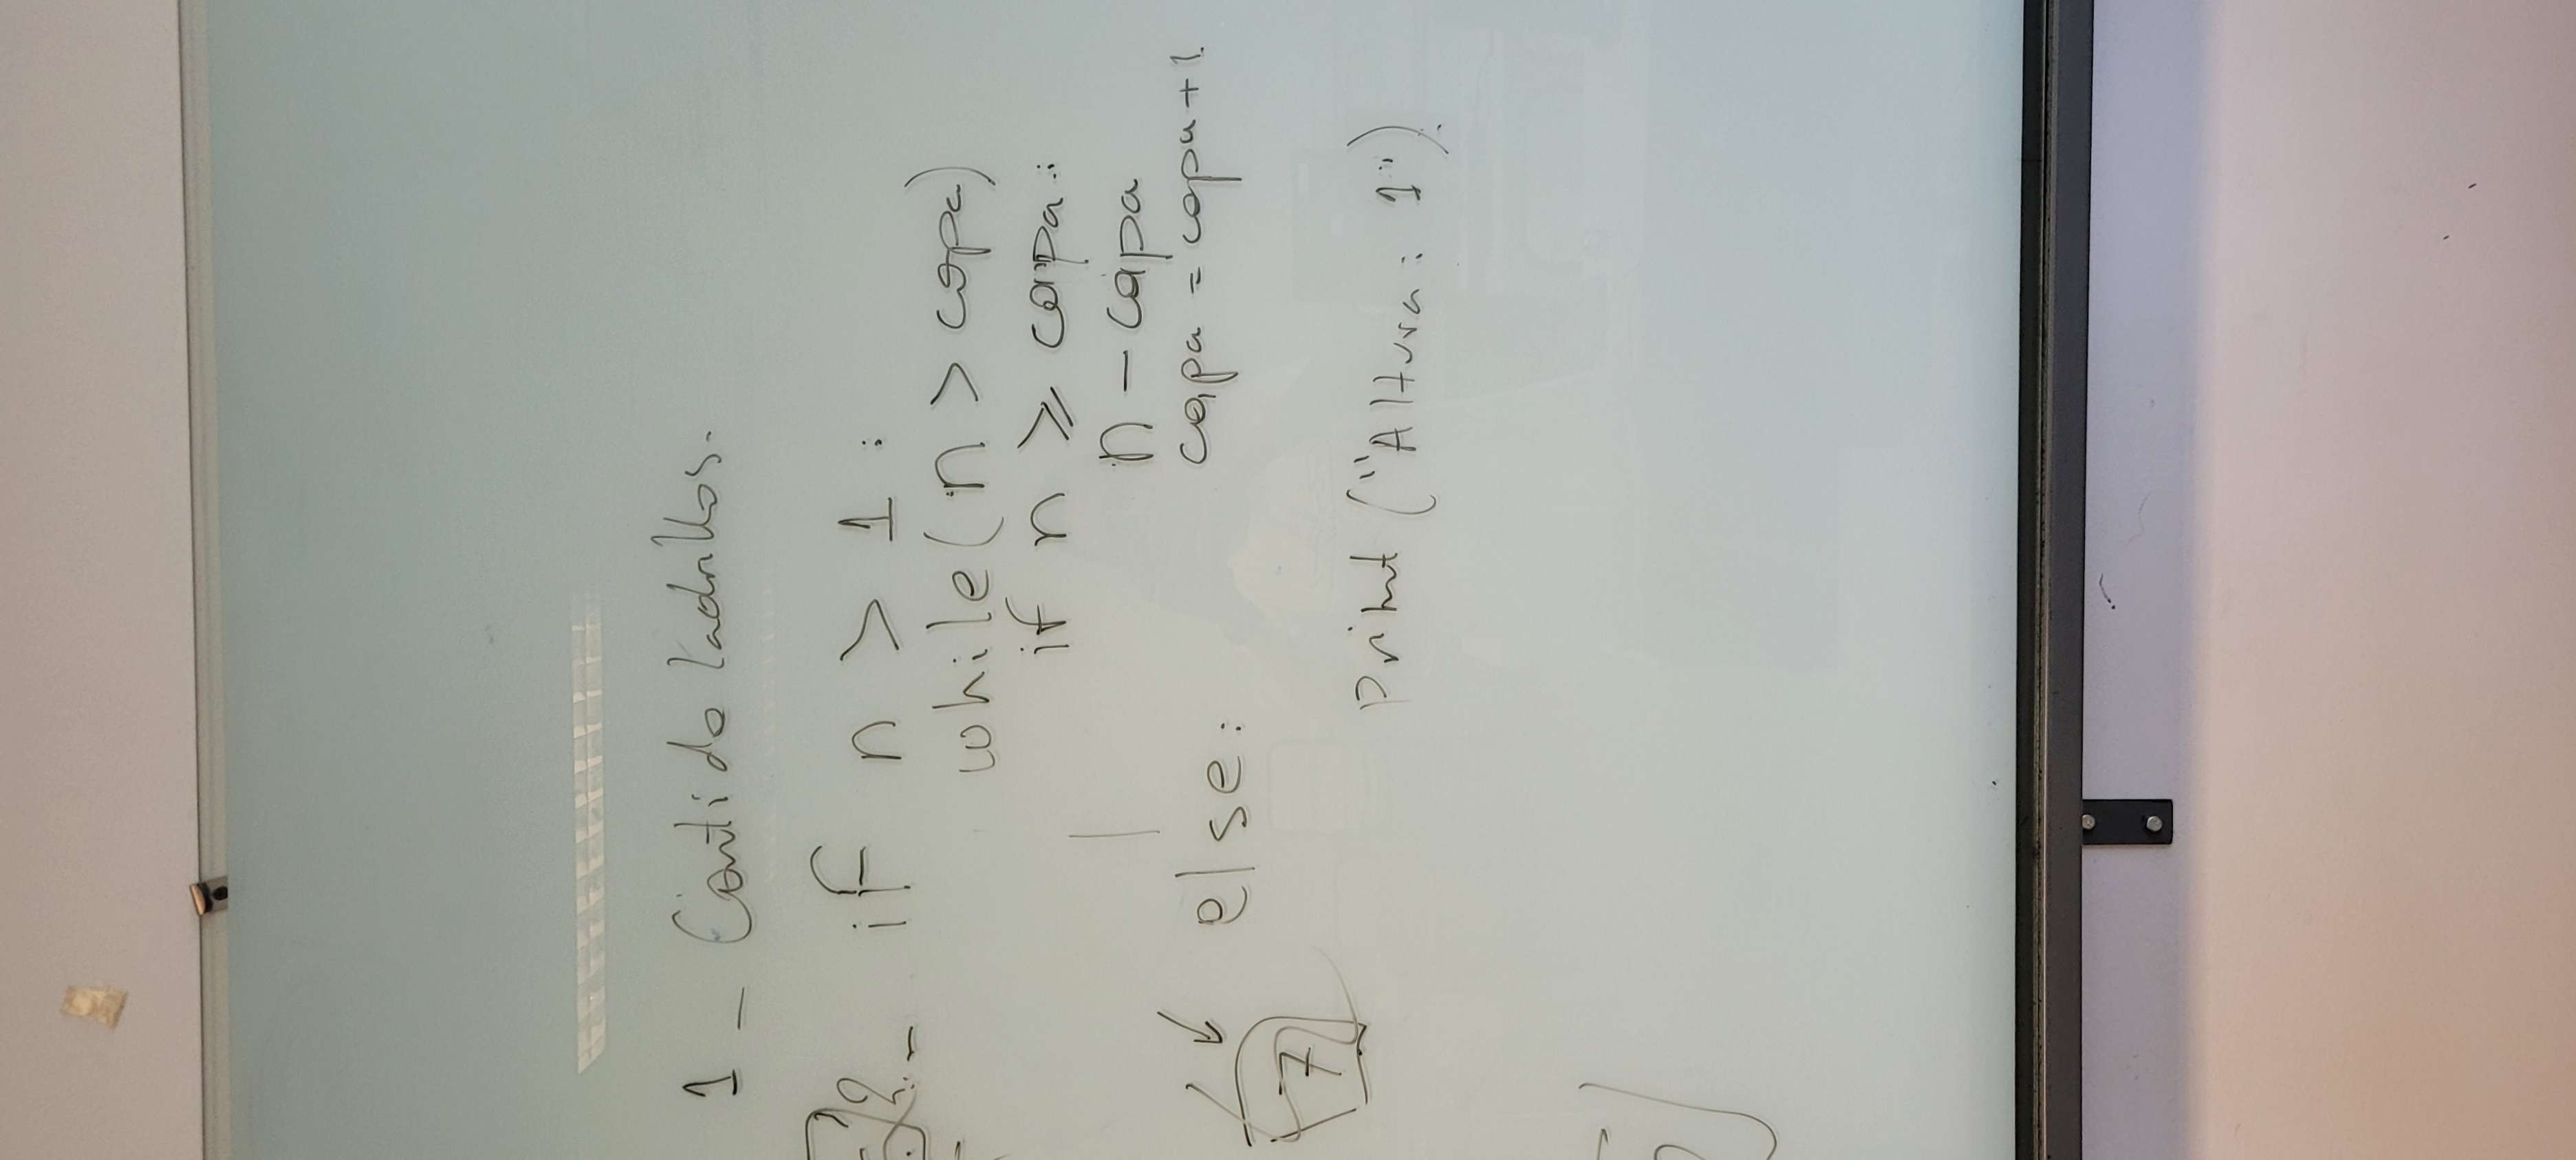 1 - Cantida ladrillos.
2.- if n > 1 :
while (n > capa)
if n ≥ capa :
n - capa
capa = capa + 1.
else :
7
Print ("Altura : 1").